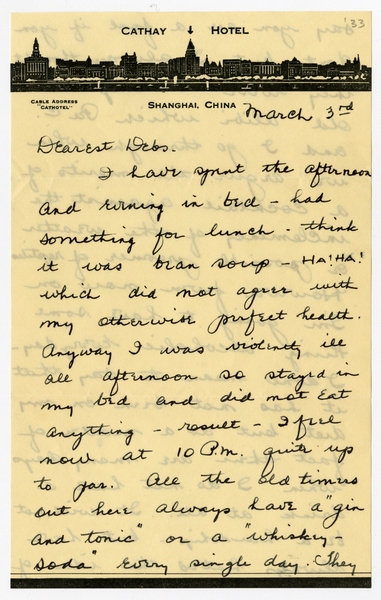 '33
CATHAY ↓ HOTEL
CABLE ADDRESS
"CATHOTEL"
SHANGHAI, CHINA
March 3rd
Dearest Debs.
I have spent the afternoon
and evening in bed - had
something for lunch - think
it was bean soup - HA! HA!
which did not agree with
my otherwise perfect health.
Anyway I was violently ill
all afternoon so stayed in
my bed and did not eat
anything - result - I feel
now at 10 P.M. quite up
to par. All the old timers
out here always have a "gin
and tonic" or a "whiskey -
soda" every single day. They